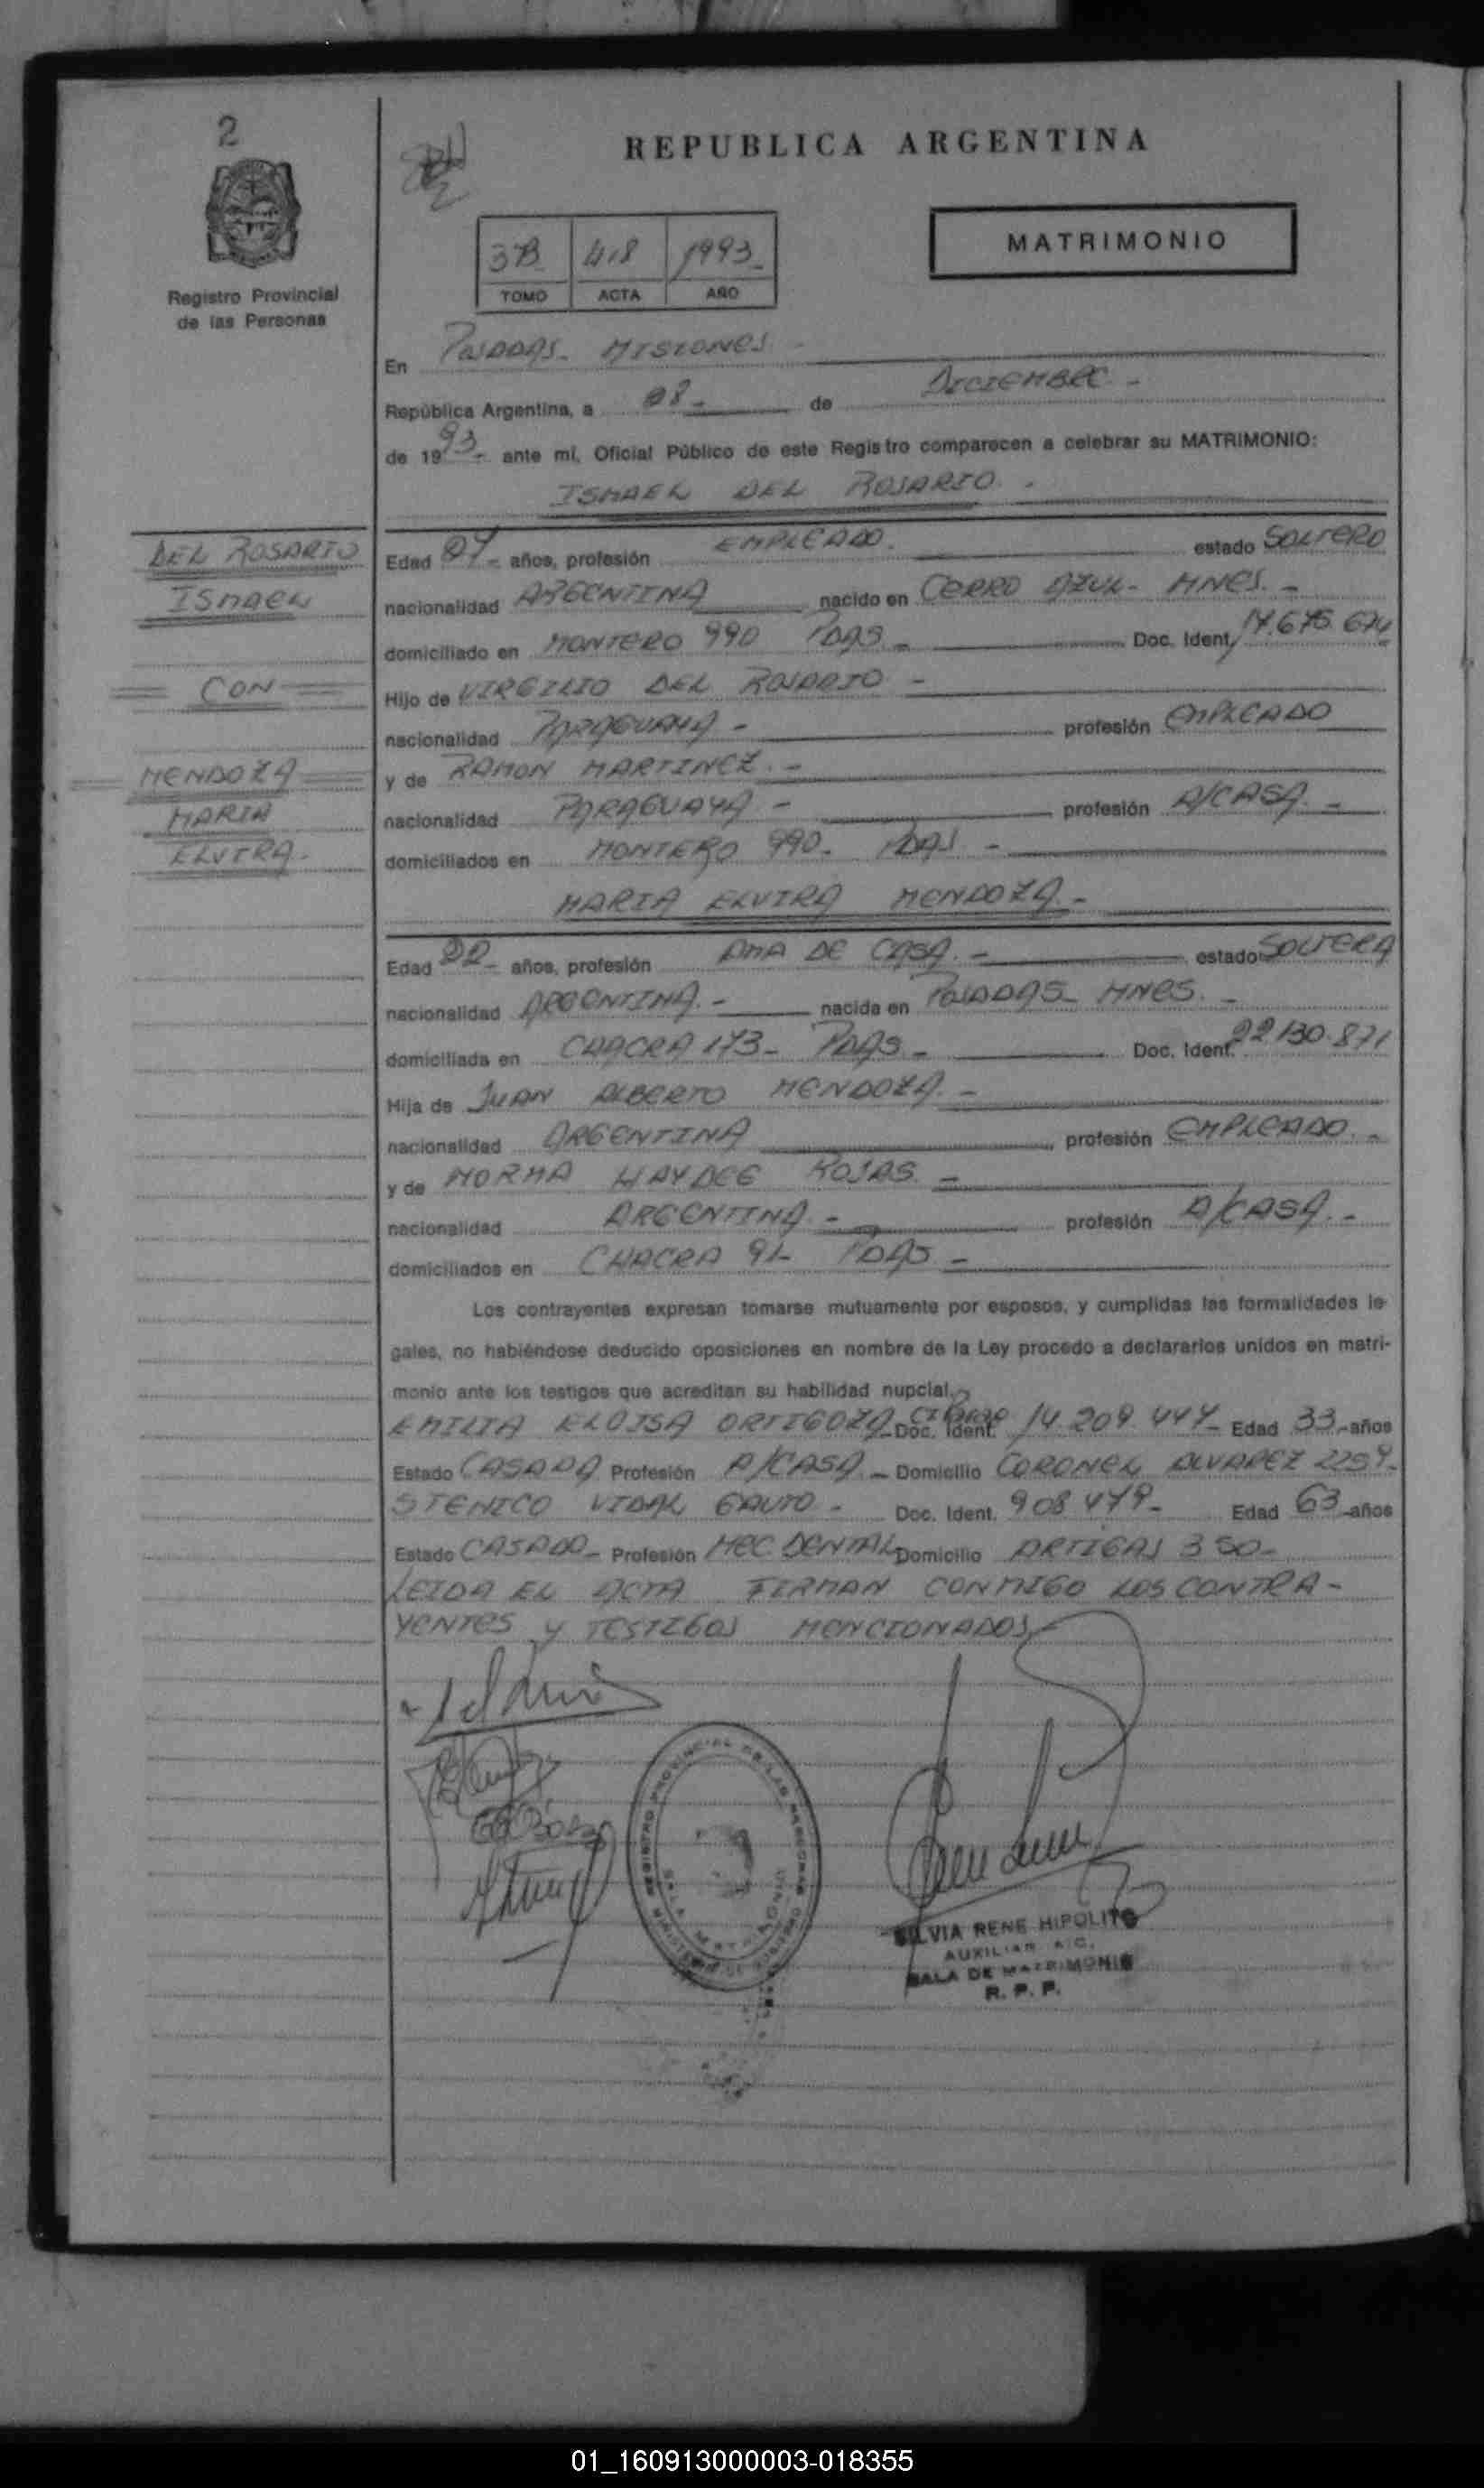 2
REPUBLICA ARGENTINA
3B 418 1993
TOMO ACTA AÑO
MATRIMONIO
Registro Provincial
de las Personas
En POSADAS - MISIONES -
República Argentina, a 08 - de DICIEMBRE -
de 1993 - ante mí, Oficial Público de este Registro comparecen a celebrar su MATRIMONIO:
ISMAEL DEL ROSARIO -
DEL ROSARIO
ISMAEL
CON
MENDOZA
MARIA
ELVIRA -
Edad años, profesión EMPLEADO. estado SOLTERO
nacionalidad ARGENTINA nacido en CERRO AZUL - MNES. -
domiciliado en MONTERO 990 PDAS - Doc. Ident. 17.675.674
Hijo de VIRGILIO DEL ROSARIO -
nacionalidad PARAGUAYA - profesión EMPLEADO
y de RAMON MARTINEZ. -
nacionalidad PARAGUAYA - profesión A/CASA. -
domiciliados en MONTERO 990 - PDAS -
MARIA ELVIRA MENDOZA -
Edad 22 - años, profesión AMA DE CASA. - estado SOLTERA
nacionalidad ARGENTINA. - nacida en POSADAS - MNES. -
domiciliada en CHACRA 173 - PDAS - Doc. Ident. 22.130.871
Hija de JUAN ALBERTO MENDOZA. -
nacionalidad ARGENTINA profesión EMPLEADO. -
y de NORMA HAYDEE ROJAS. -
nacionalidad ARGENTINA - profesión A/CASA. -
domiciliados en CHACRA 91 - PDAS -
Los contrayentes expresan tomarse mutuamente por esposos, y cumplidas las formalidades le-
gales, no habiéndose deducido oposiciones en nombre de la Ley procedo a declararlos unidos en matri-
monio ante los testigos que acreditan su habilidad nupcial.
EMILIA ELOISA ORTIGOZA - Doc. Ident. 14.209.447 - Edad 33 - años
Estado CASADA Profesión A/CASA - Domicilio CORONEL ALVAREZ 2259 -
STENICO VIDAL GAUTO - Doc. Ident. 908.479 - Edad 63 - años
Estado CASADO - Profesión MEC DENTAL Domicilio ARTIGAS 350 -
LEIDA EL ACTA FIRMAN CONMIGO LOS CONTRA-
YENTES y TESTIGOS MENCIONADOS
REGISTRO PROVINCIAL DE LAS PERSONAS
SALA MATRIMONIO
MINISTERIO DE GOBIERNO
SILVIA RENE HIPOLITO
AUXILIAR
SALA DE MATRIMONIO
R. P. P.
01_160913000003-018355